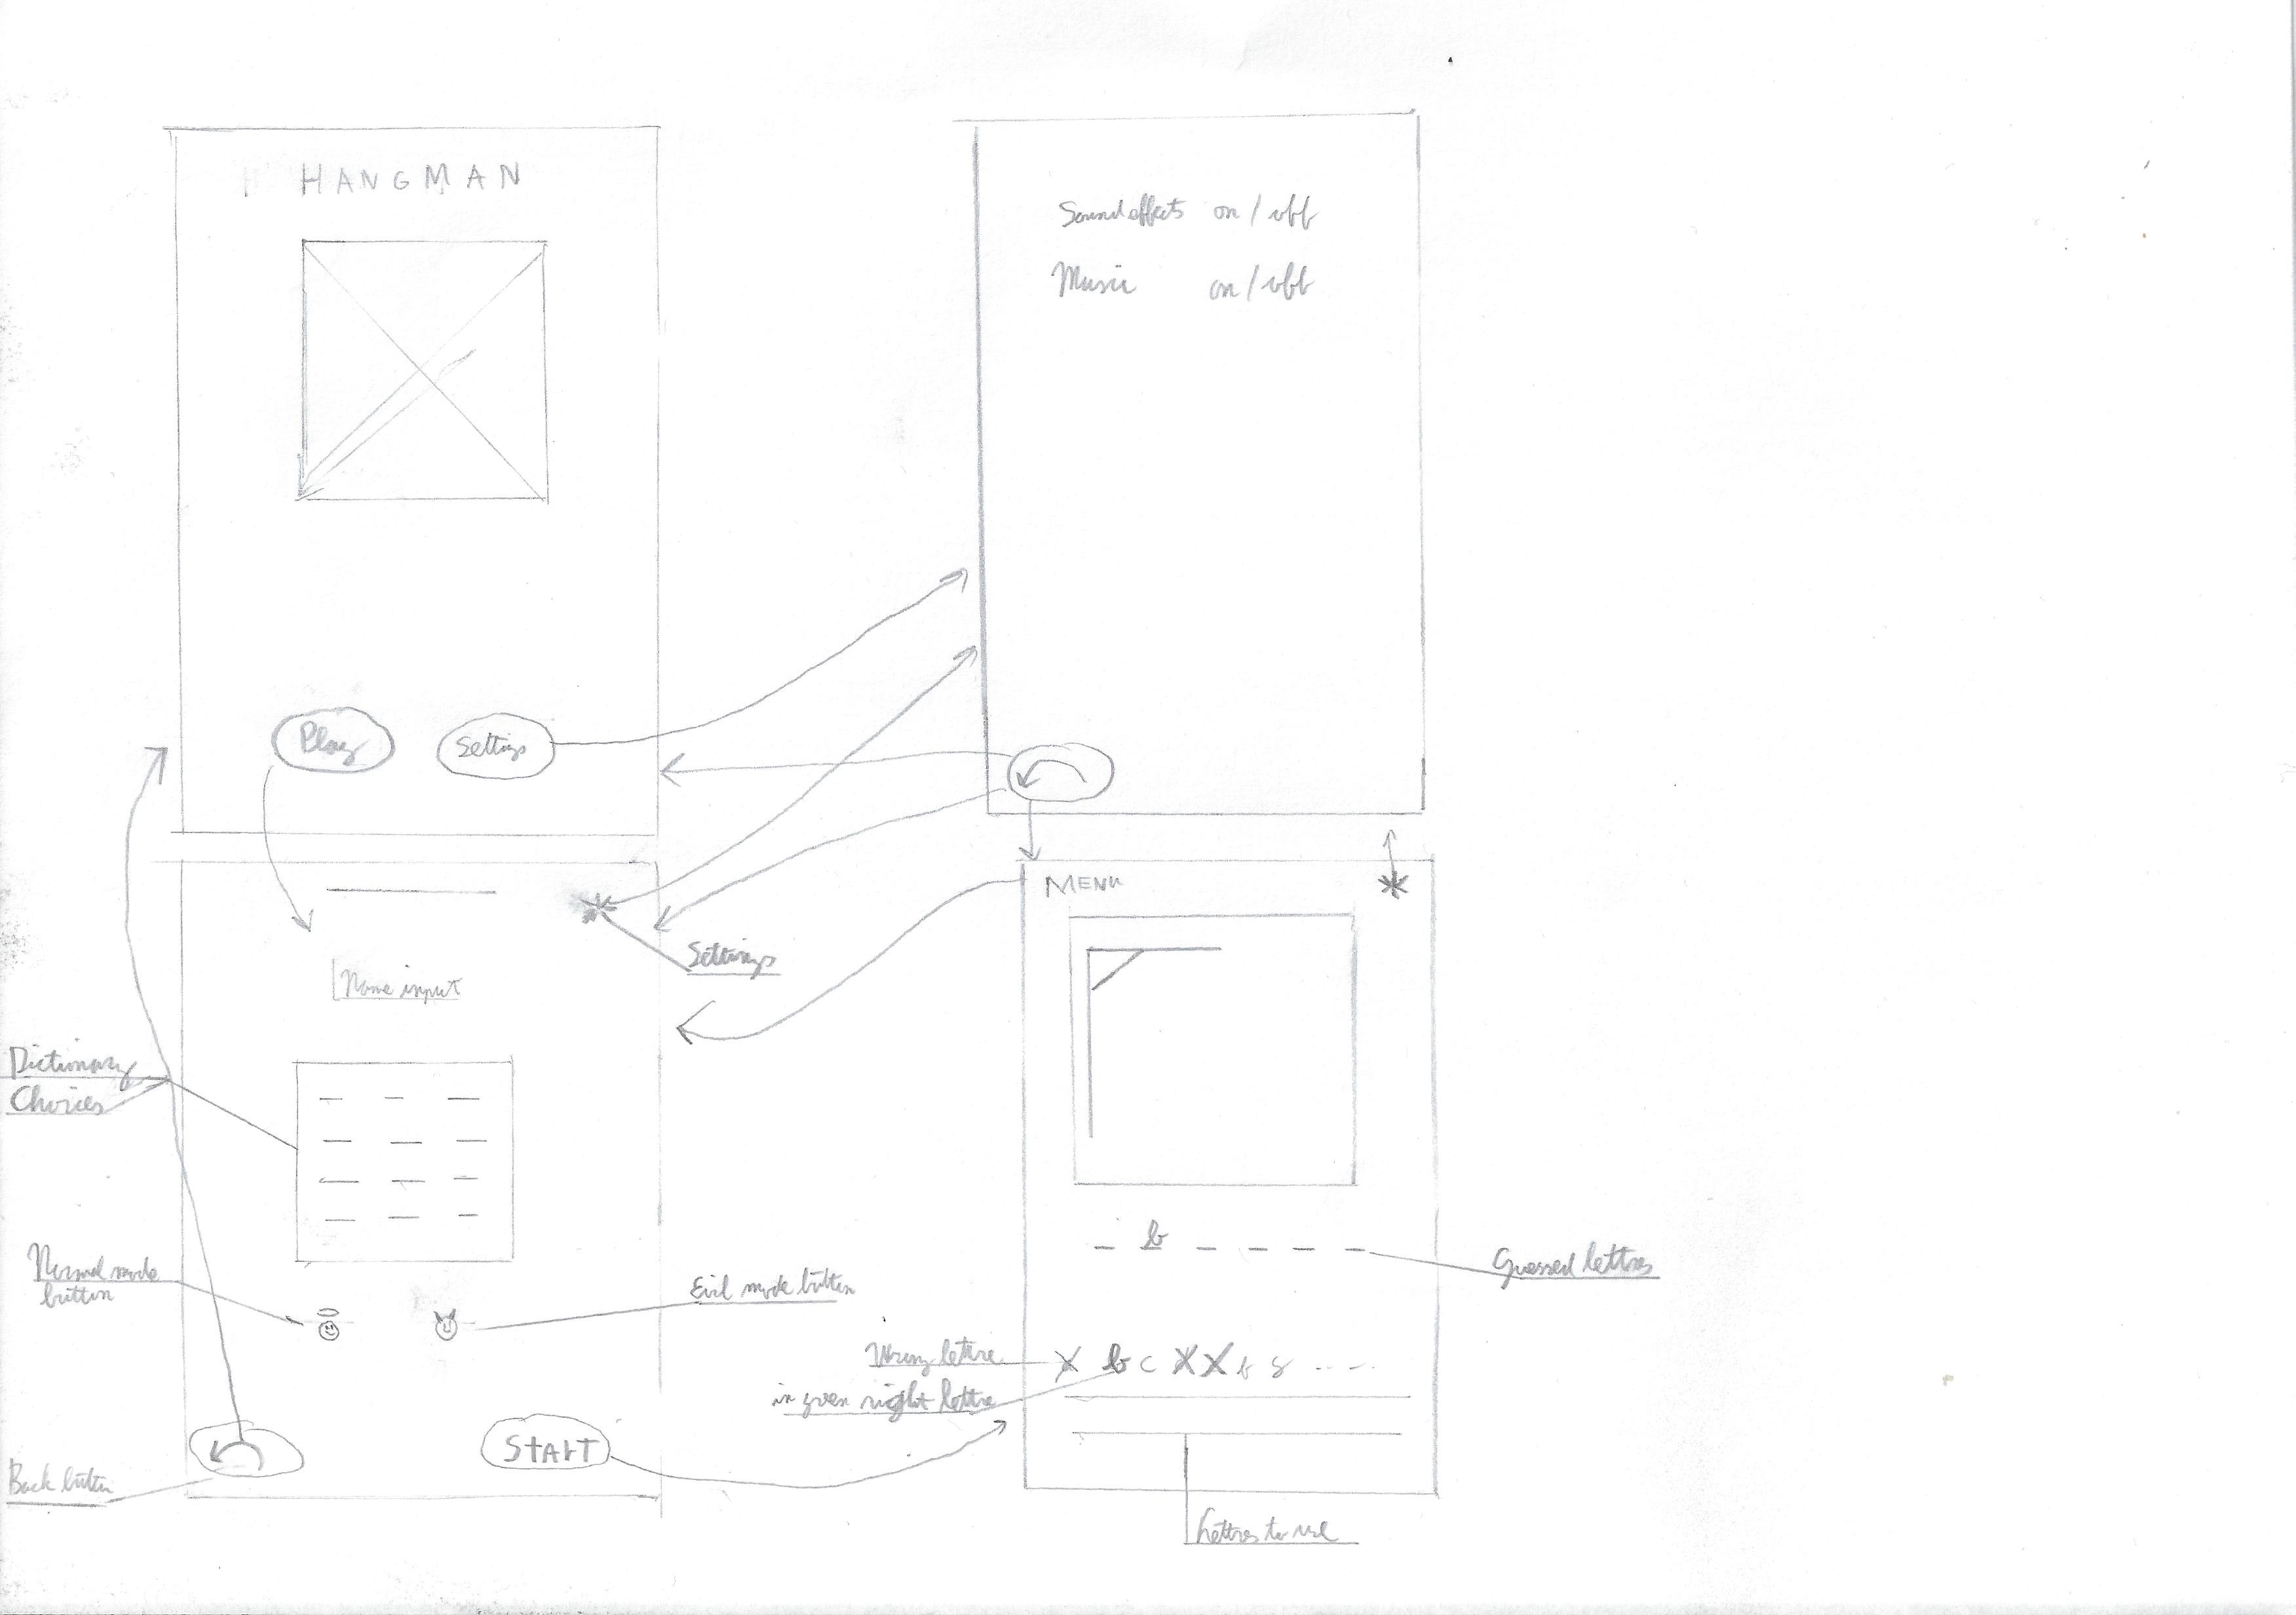 HANGMAN
Play
Settings
Sound effects on / off
Music on / off
Settings
Name input
Dictionary
Choices
Normal mode
button
Evil mode button
START
Back button
MENU
b
Guessed lettres
Wrong lettre
in green right lettre
X b c X X f g
Lettres to use